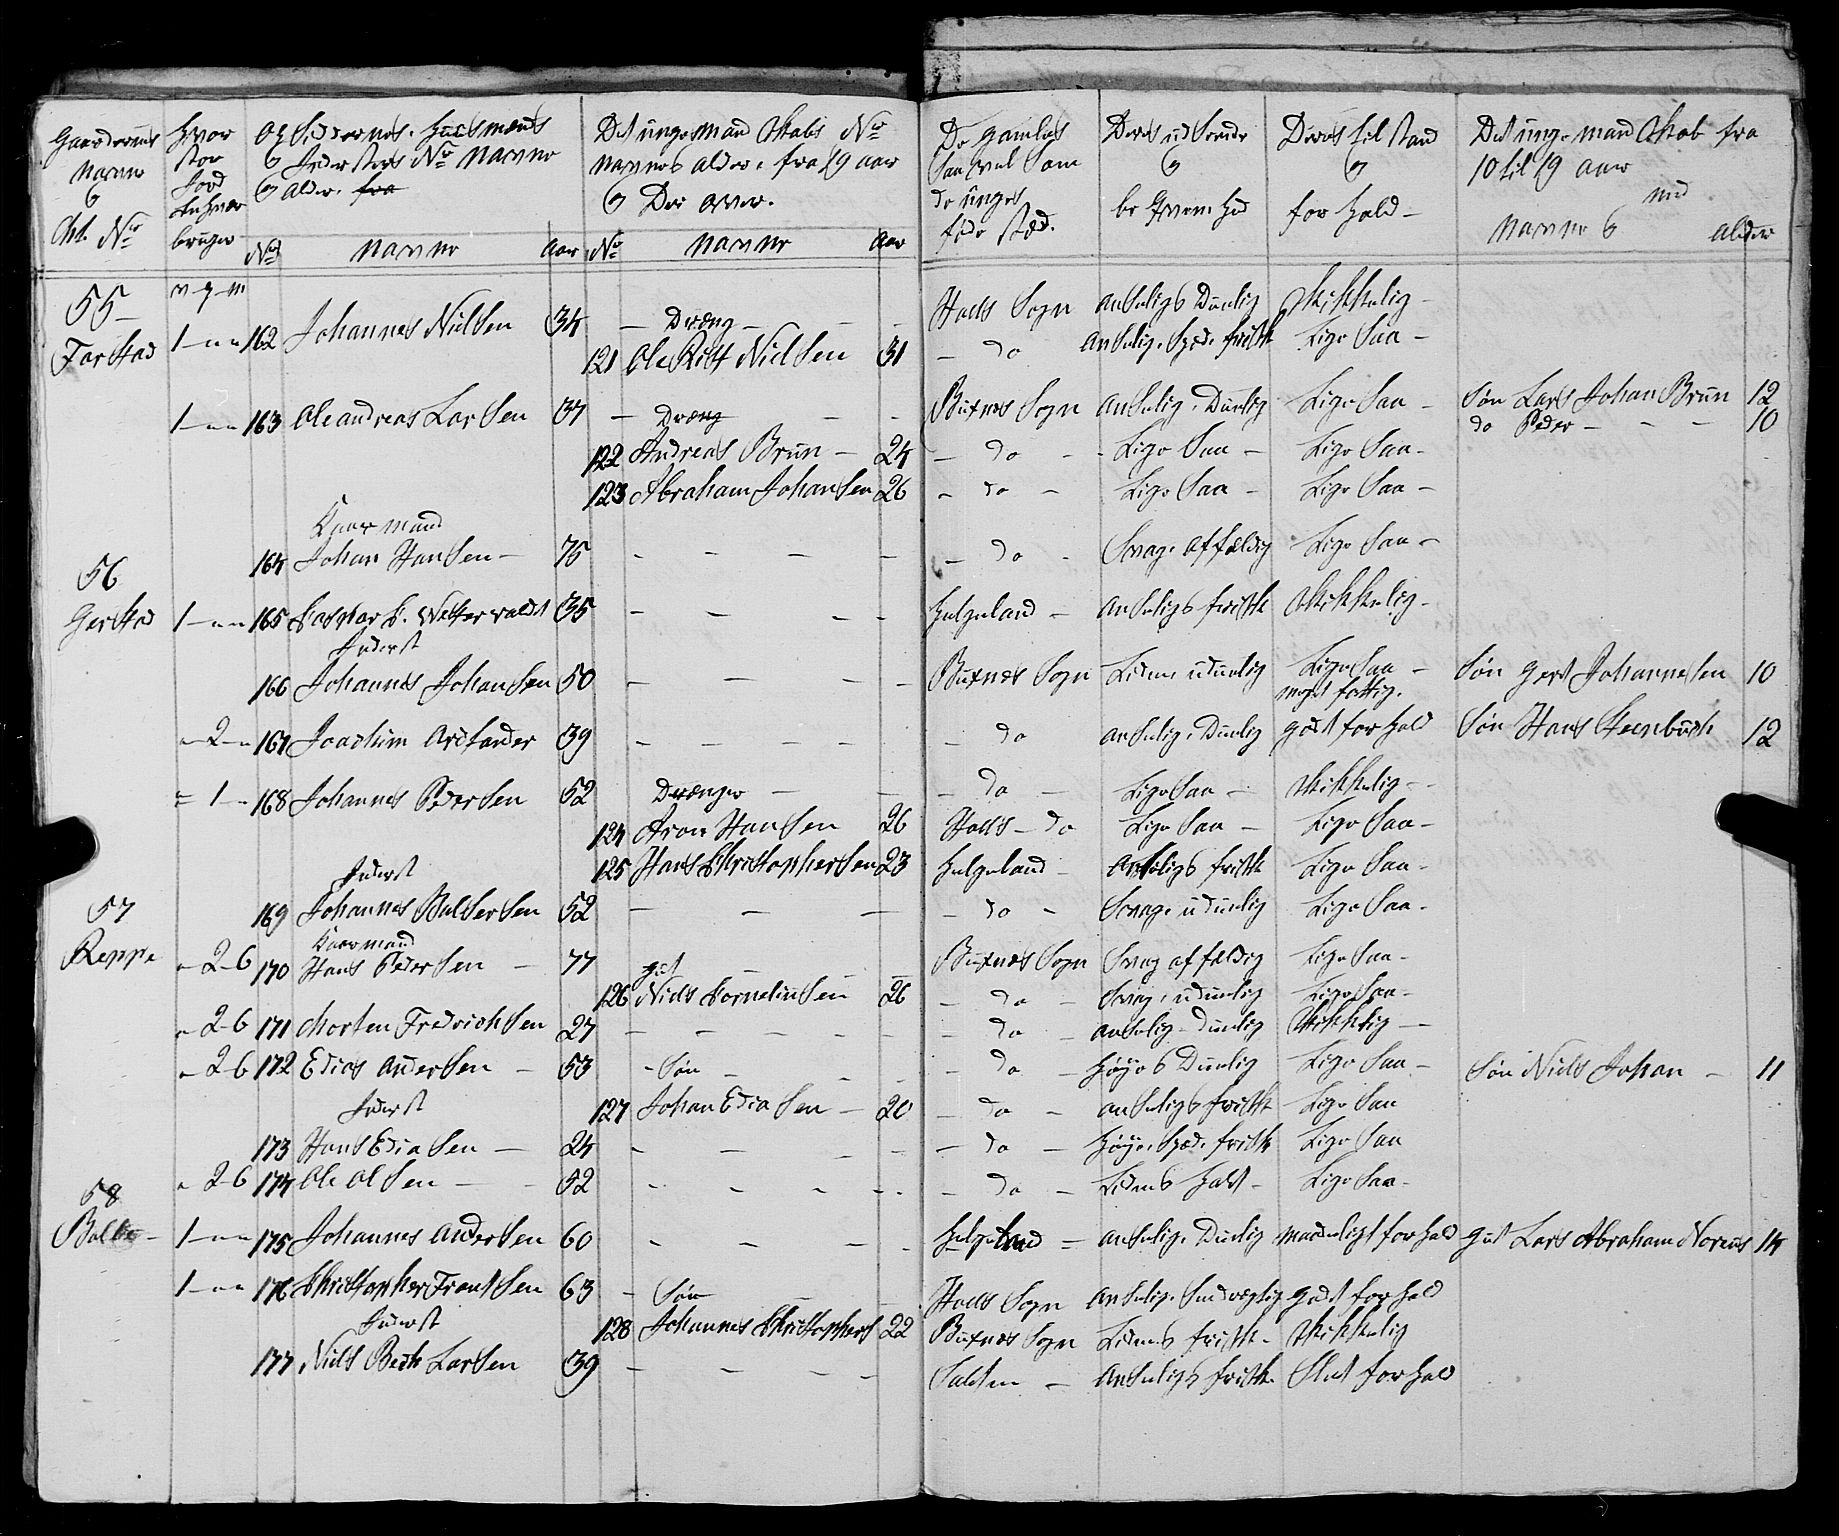 Gaardernes Navne & Cht. No | Hvor stor Jord En hver bruger | Opsidernes, Huusmænds & Inderstes No Navne & alder. | Det unge Mandskabs No Navnes alder, fra 19 aar & Der over. | De gamles saavel som de unges føde stæd. | Deres udseende & beqvemhed | Deres tilstand & forhold | Det unge mandskab fra 10 til 19 aar med Navne & alder
No | Navne | Aar | No | Navne | Aar
v - p - m
55 Farstad | 1 - " - " | 162 Johannes Nielsen | 34 | Dræng | Hols Sogn | Anseelig & Duelig | Skikkelig
121 Ole Ritt Nielsen | 31 | do | Anseelig, Spæd, frisk | Lige Saa
1 - " - " | 163 Ole andreas Larsen | 37 | Dræng | Buxnæs Sogn | Anseelig, Duelig | Lige Saa | Søn Lars Johan Brun | 12
do Peder | 10
122 Andreas Brun | 24 | do | Lige Saa | Lige Saa
123 Abraham Johansen | 26 | do | Lige Saa | Lige Saa
Kaarmand
164 Johan Hansen | 75 | do | Svag, affældig | Lige Saa
56 Gierstad | 1 - " - " | 165 Casper C. Wetterwaldt | 35 | Helgeland | Anseelig & frisk | Skikkelig
Inderst
166 Johannes Johansen | 50 | Buxnæs Sogn | Liden, uduelig | Lige Saa meget fattig. | Søn Gert Johannesen | 10
" - 2 - " | 167 Joachim | 39 | do | anseelig, Duelig | godt forhold | Søn Hans Steenbuch | 12
" - 1 - " | 168 Johannes Pedersen | 52 | Drænger | do | Lige Saa | Skikkelig
124 Aron Hansen | 26 | Hols - do | Lige Saa | Lige Saa
125 Hans Christophersen | 23 | Helgeland | Anseelig & frisk | Lige Saa
Inderst
57 Reppe | 169 Johannes Baltsersen | 52 | do | Svag, uduelig | Lige Saa
Kaarmand
" - 2 - 6 | 170 Hans Pedersen | 77 | gut | Buxnæs Sogn | Svag affældig | Lige Saa
126 Niels Corneliusen | 26 | do | Svag, uduelig | Lige Saa
" 2 - 6 | 171 Morten Fredrichsen | 27 | do | anseelig - Duelig | Skikklig
" 2 - 6 | 172 Edias Andersen | 53 | Søn | do | Høy & Duelig | Lige Saa | Søn Niels Johan | 11
Inderst | 127 Johan Ediasen | 20 | do | anseelig & frisk | Lige Saa
173 Hans Ediasen | 24 | do | Høy, Spæd, frisk | Lige Saa
" 2 - 6 | 174 Ole Olsen | 52 | do | Liden & Halt | Lige Saa
58 Balle | 1 - " - " | 175 Johannes Andersen | 60 | Helgeland | anseelig, Duelig | maadeligt forhold | Gut Lars Abraham | 14
1 - " - " | 176 Christopher Frantsen | 63 | Søn | Hols Sogn | Anseelig, | godt forhold
Inderst | 128 Johannes Christophers | 22 | Buxnæs Sogn | Liden & frisk | Skikkelig
177 Niels Bech Larsen | 39 | Salten | Anseelig & frisk | Slet forhold